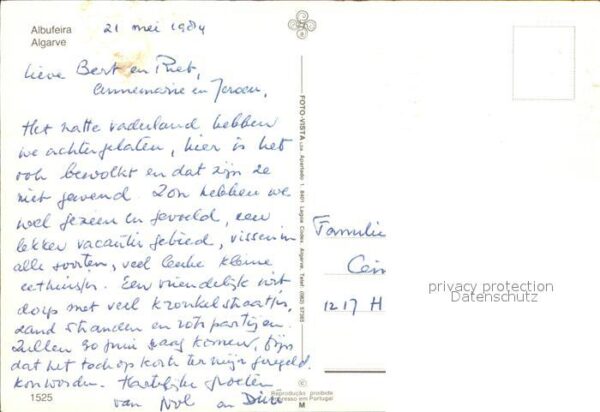 Albufeira
Algarve
21 mei 1984
Lieve Bert en Riet,
Annemarie en Jeroen,
Het natte vaderland hebben
we achtergelaten, hier is het
ook bewolkt en dat zijn ze
niet gewend. Zon hebben we
wel gezien en gevoeld, een
lekker vacantie gebied, vissen in
alle soorten, veel leuke kleine
eethuisjes. Een vriendelijk wit
dorp met veel kronkelstraatjes,
zand stranden en rotspartijen.
Zullen 30 juni graag komen, fijn
dat het toch op korte termijn geregeld
kon worden. Hartelijke groeten
van Nol en
1525
FOTO-VISTA Lda. Apartado 1 8401 Lagoa Codex Algarve. Telef. (082) 57365
©
Reprodução proibida
Impresso em Portugal
M
Familie
1217 H
privacy protection
Datenschutz